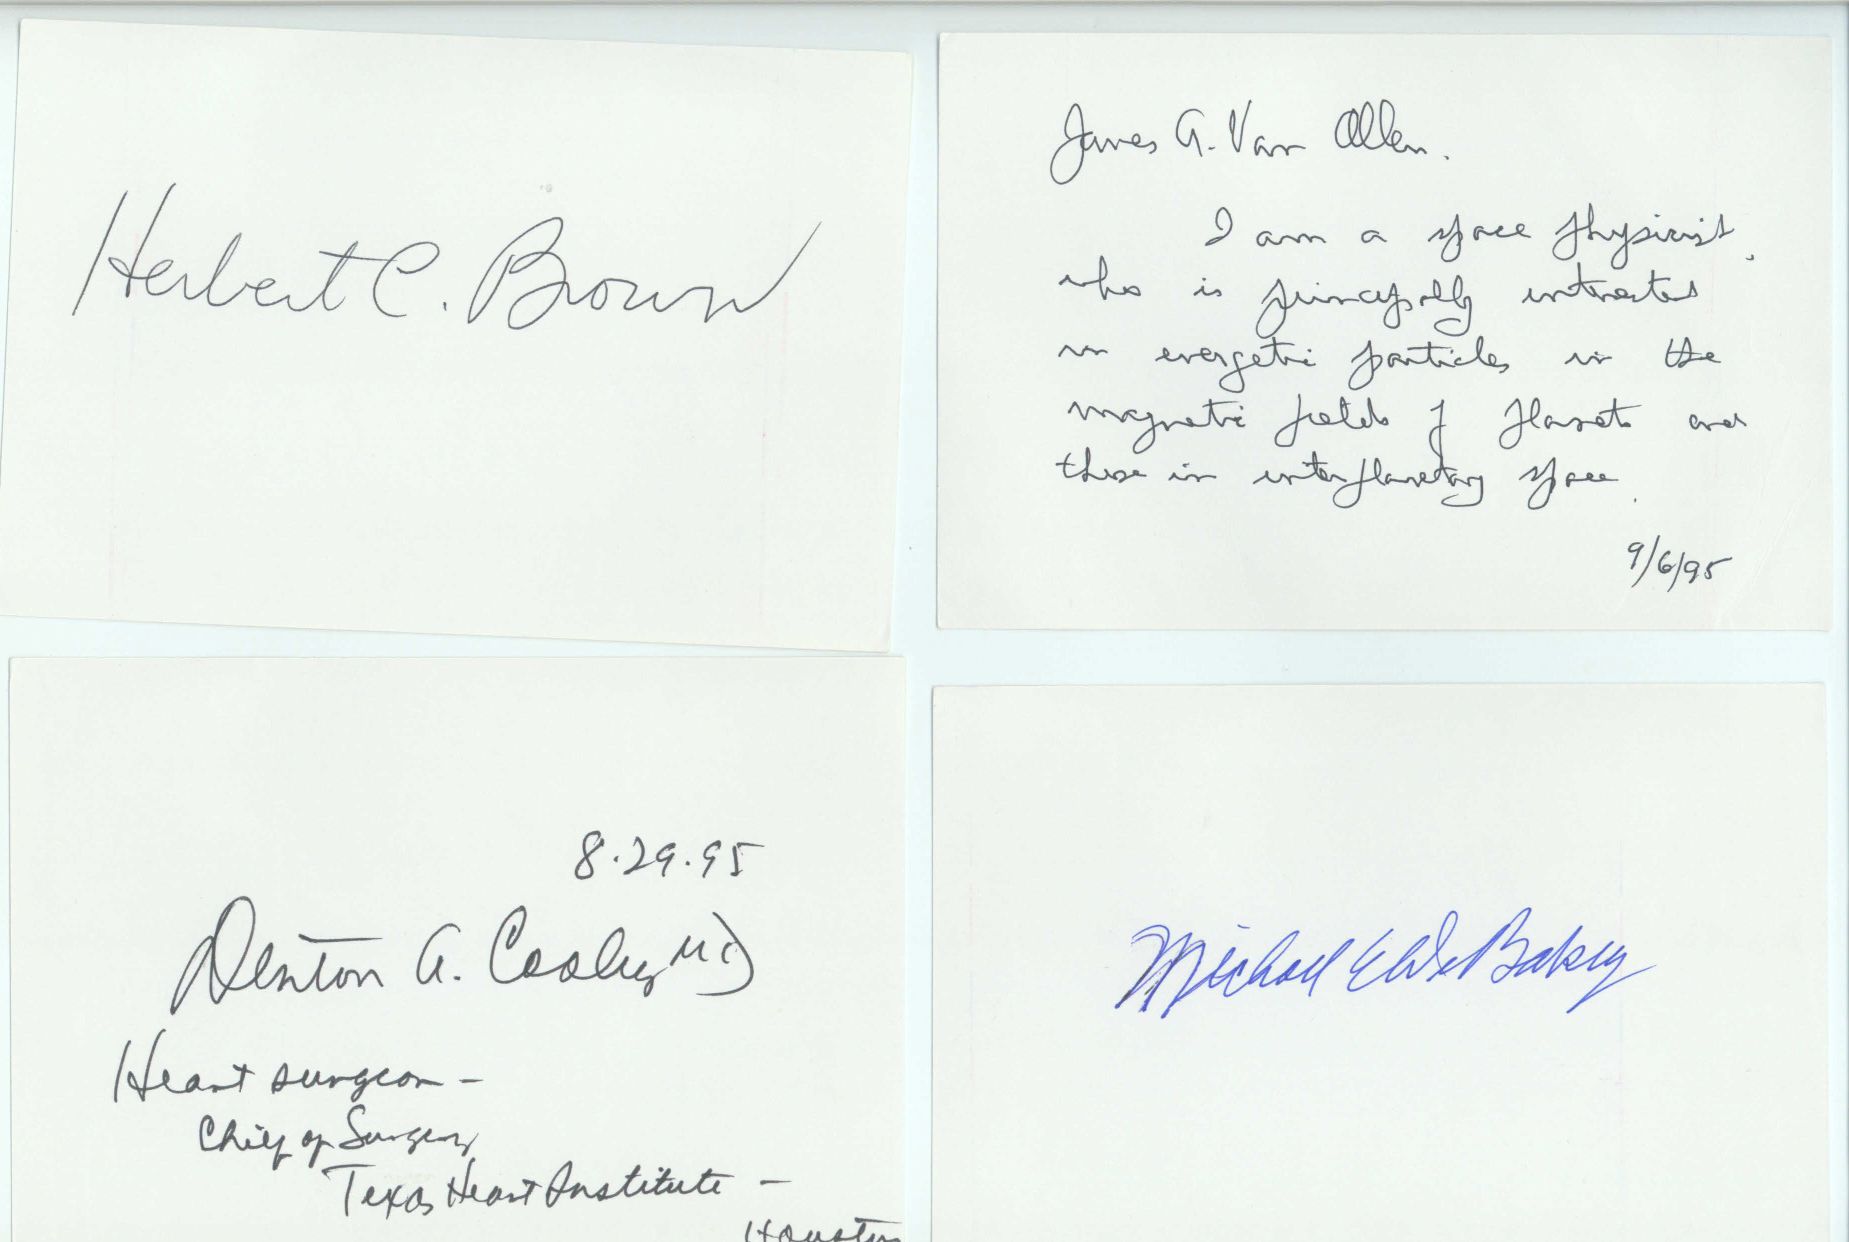 Herbert C. Brown
James A. Van Allen.
I am a space physicist,
who is principally interested
in energetic particles in the
magnetic fields of planets and
those in interplanetary space.
9/6/95
8.29.95
Denton A. Cooley MD
Heart surgeon -
Chief of Surgery
Texas Heart Institute -
Houston
Michael E. DeBakey